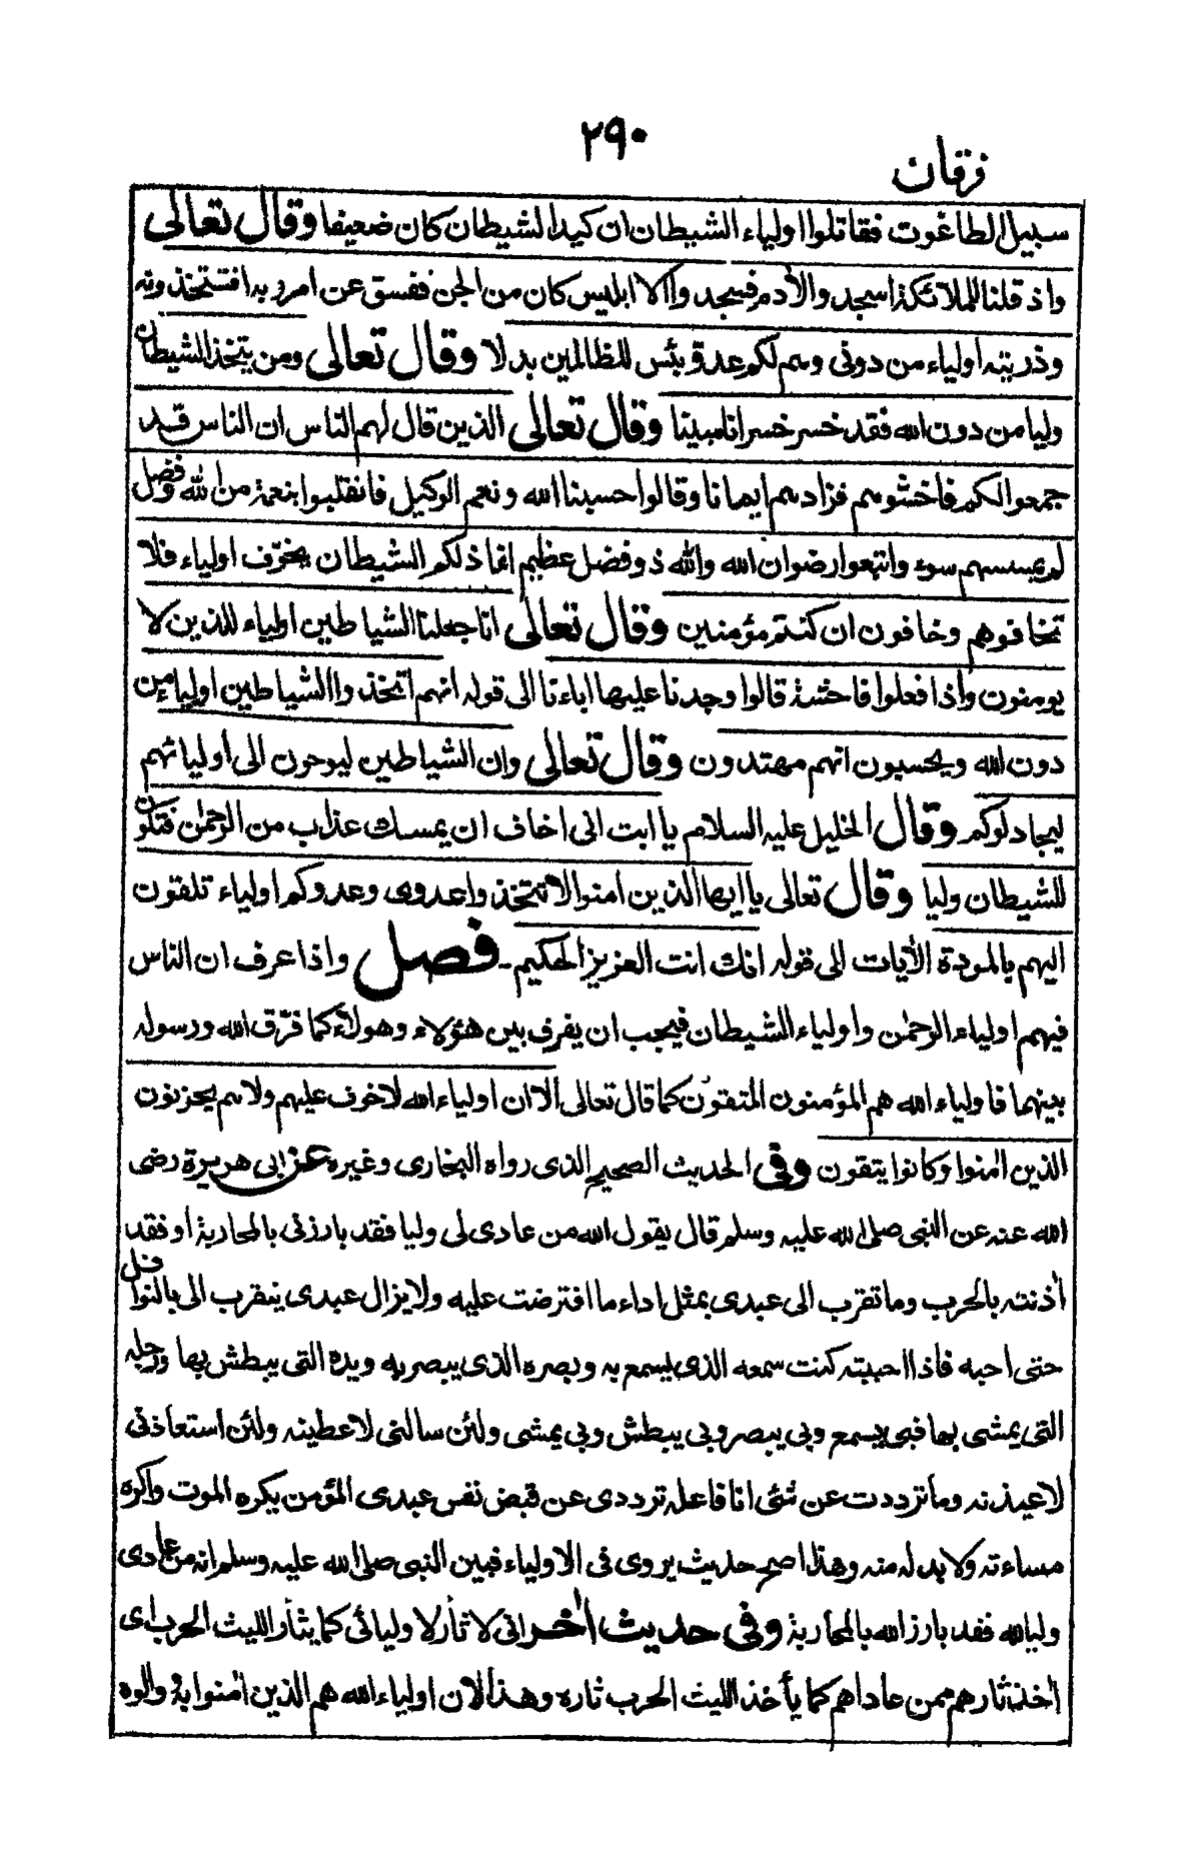 ٢٩٠
فرقان
سبيل الطاغوت فقاتلوا اولياء الشيطان ان كيد الشيطان كان ضعيفا وقال تعالى
واذ قلنا للملائكة اسجدوا لأدم فسجدوا الا ابليس كان من الجن ففسق عن امر ربه افتتخذونه
وذريته اولياء من دونى وهم لكم عدو بئس للظالمين بدلا وقال تعالى ومن يتخذ الشيطان
وليا من دون الله فقد خسر خسرانا مبينا وقال تعالى الذين قال لهم الناس ان الناس قد
جمعوا لكم فاخشوهم فزادهم ايمانا وقالوا حسبنا الله ونعم الوكيل فانقلبوا بنعمة من الله وفضل
لم يمسسهم سوء واتبعوا رضوان الله والله ذو فضل عظيم انما ذلكم الشيطان يخوّف اولياءه فلا
تخافوهم وخافون ان كنتم مؤمنين وقال تعالى انا جعلنا الشياطين اولياء للذين لا
يومنون واذا فعلوا فاحشة قالوا وجدنا عليها اباءنا الى قوله انهم اتخذوا الشياطين اولياء من
دون الله ويحسبون انهم مهتدون وقال تعالى وان الشياطين ليوحون الى أوليائهم
ليجادلوكم وقال الخليل عليه السلام يا ابت انى اخاف ان يمسك عذاب من الرحمٰن فتكون
للشيطان وليا وقال تعالى يا ايها الذين امنوا لا تتخذوا عدوى وعدوكم اولياء تلقون
اليهم بالمودة الأيات الى قوله انك انت العزيز الحكيم ـ فصل واذا عرف ان الناس
فيهم اولياء الرحمٰن واولياء الشيطان فيجب ان يفرق بين هؤلاء وهولآء كما فرّق الله ورسوله
بينهما فاولياء الله هم المؤمنون المتقون كما قال تعالى الا ان اولياء الله لا خوف عليهم ولا هم يحزنون
الذين امنوا وكانوا يتقون وفى الحديث الصحيح الذى رواه البخارى وغيره عن ابى هريرة رضى
الله عنه عن النبى صلى الله عليه وسلم قال يقول الله من عادى لى وليا فقد بارزنى بالمحاربة او فقد
أذنته بالحرب وما تقرب الى عبدى بمثل اداء ما افترضت عليه ولا يزال عبدى يتقرب الى بالنوافل
حتى احبه فاذا احببته كنت سمعه الذى يسمع به وبصره الذى يبصر به ويده التى يبطش بها ورجله
التى يمشى بها فبى يسمع وبى يبصر وبى يبطش وبى يمشى ولئن سالنى لاعطينه ولئن استعاذنى
لاعيذنه وما ترددت عن شئى انا فاعله ترددى عن قبض نفس عبدى المؤمن يكره الموت واكره
مساءته ولا بد له منه وهذا اصح حديث يروى فى الاولياء فبين النبى صلى الله عليه وسلم انه من عادى
وليا لله فقد بارز الله بالمحاربة وفى حديث اٰخر انى لا ثأر لا وليائى كما يثأر الليث الحرب اى
اٰخذ ثارهم ممن عاداهم كما يأخذ الليث الحرب ثاره وهذا لان اولياء الله هم الذين اٰمنوا به ووالوه